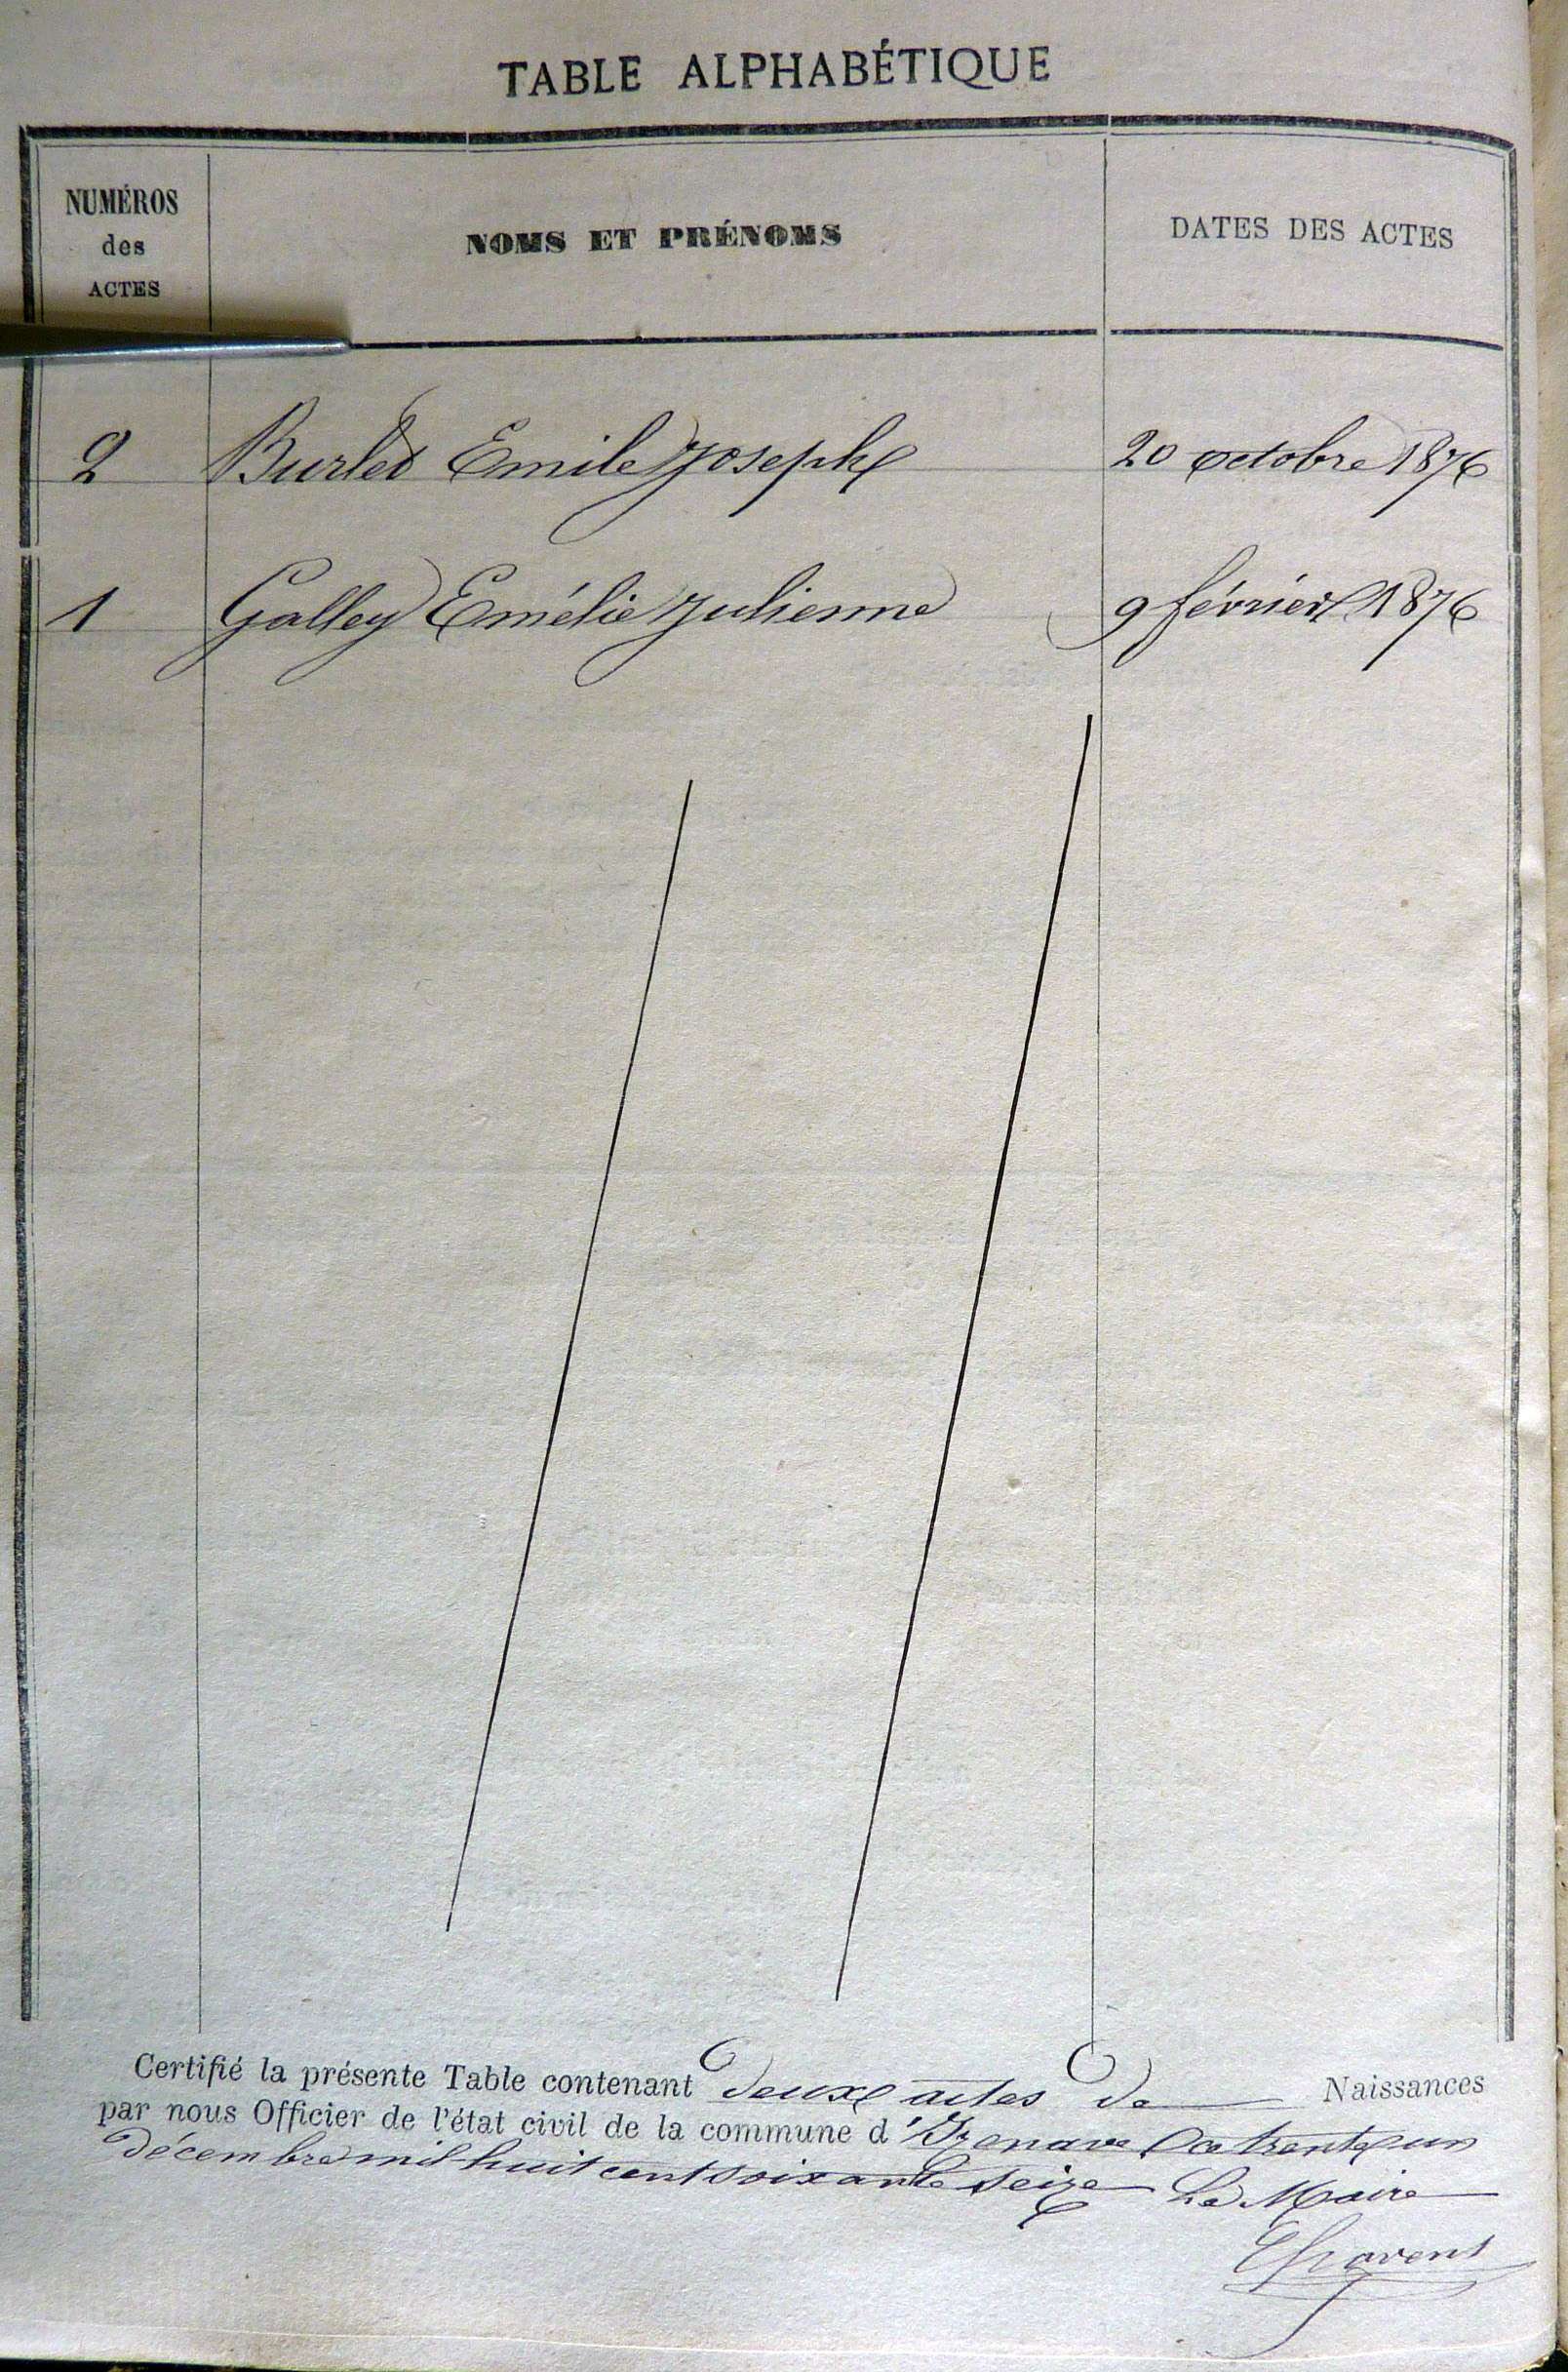 TABLE ALPHABÉTIQUE
NUMÉROS
des
ACTES
NOMS ET PRÉNOMS
DATES DES ACTES
2 Burlet Emile Joseph 20 octobre 1876
1 Galley Emélie Julienne 9 février 1876
Certifié la présente Table contenant deux actes de Naissances
par nous Officier de l'état civil de la commune d'Izenave ce trente un
décembre mil huit cent soixante seize Le Maire